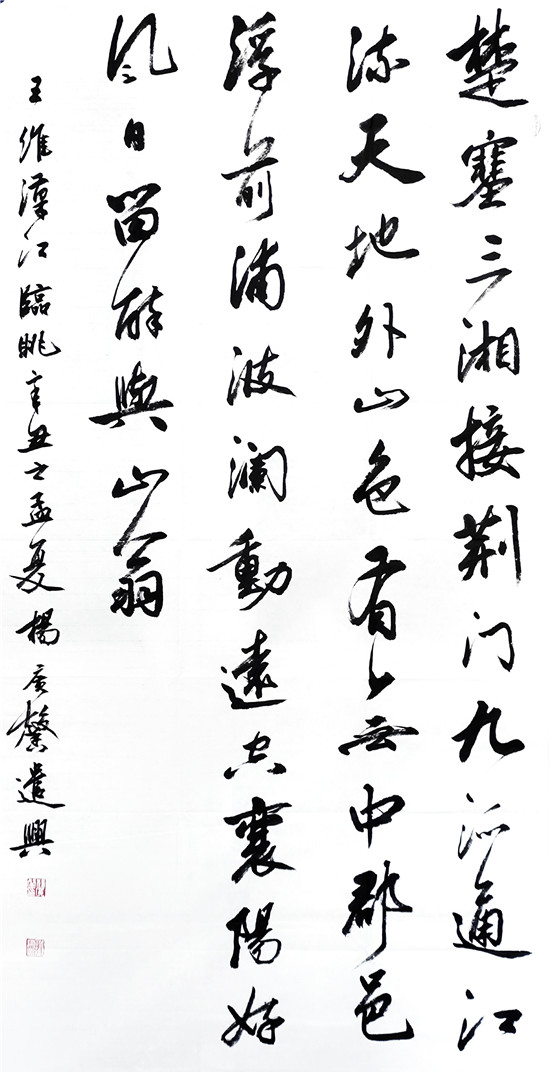 楚塞三湘接荆门九派通江
流天地外山色有无中郡邑
浮前浦波瀾動遠空襄陽好
风日留醉與山翁
王維漢江臨眺辛丑之孟夏楊广馨遣興